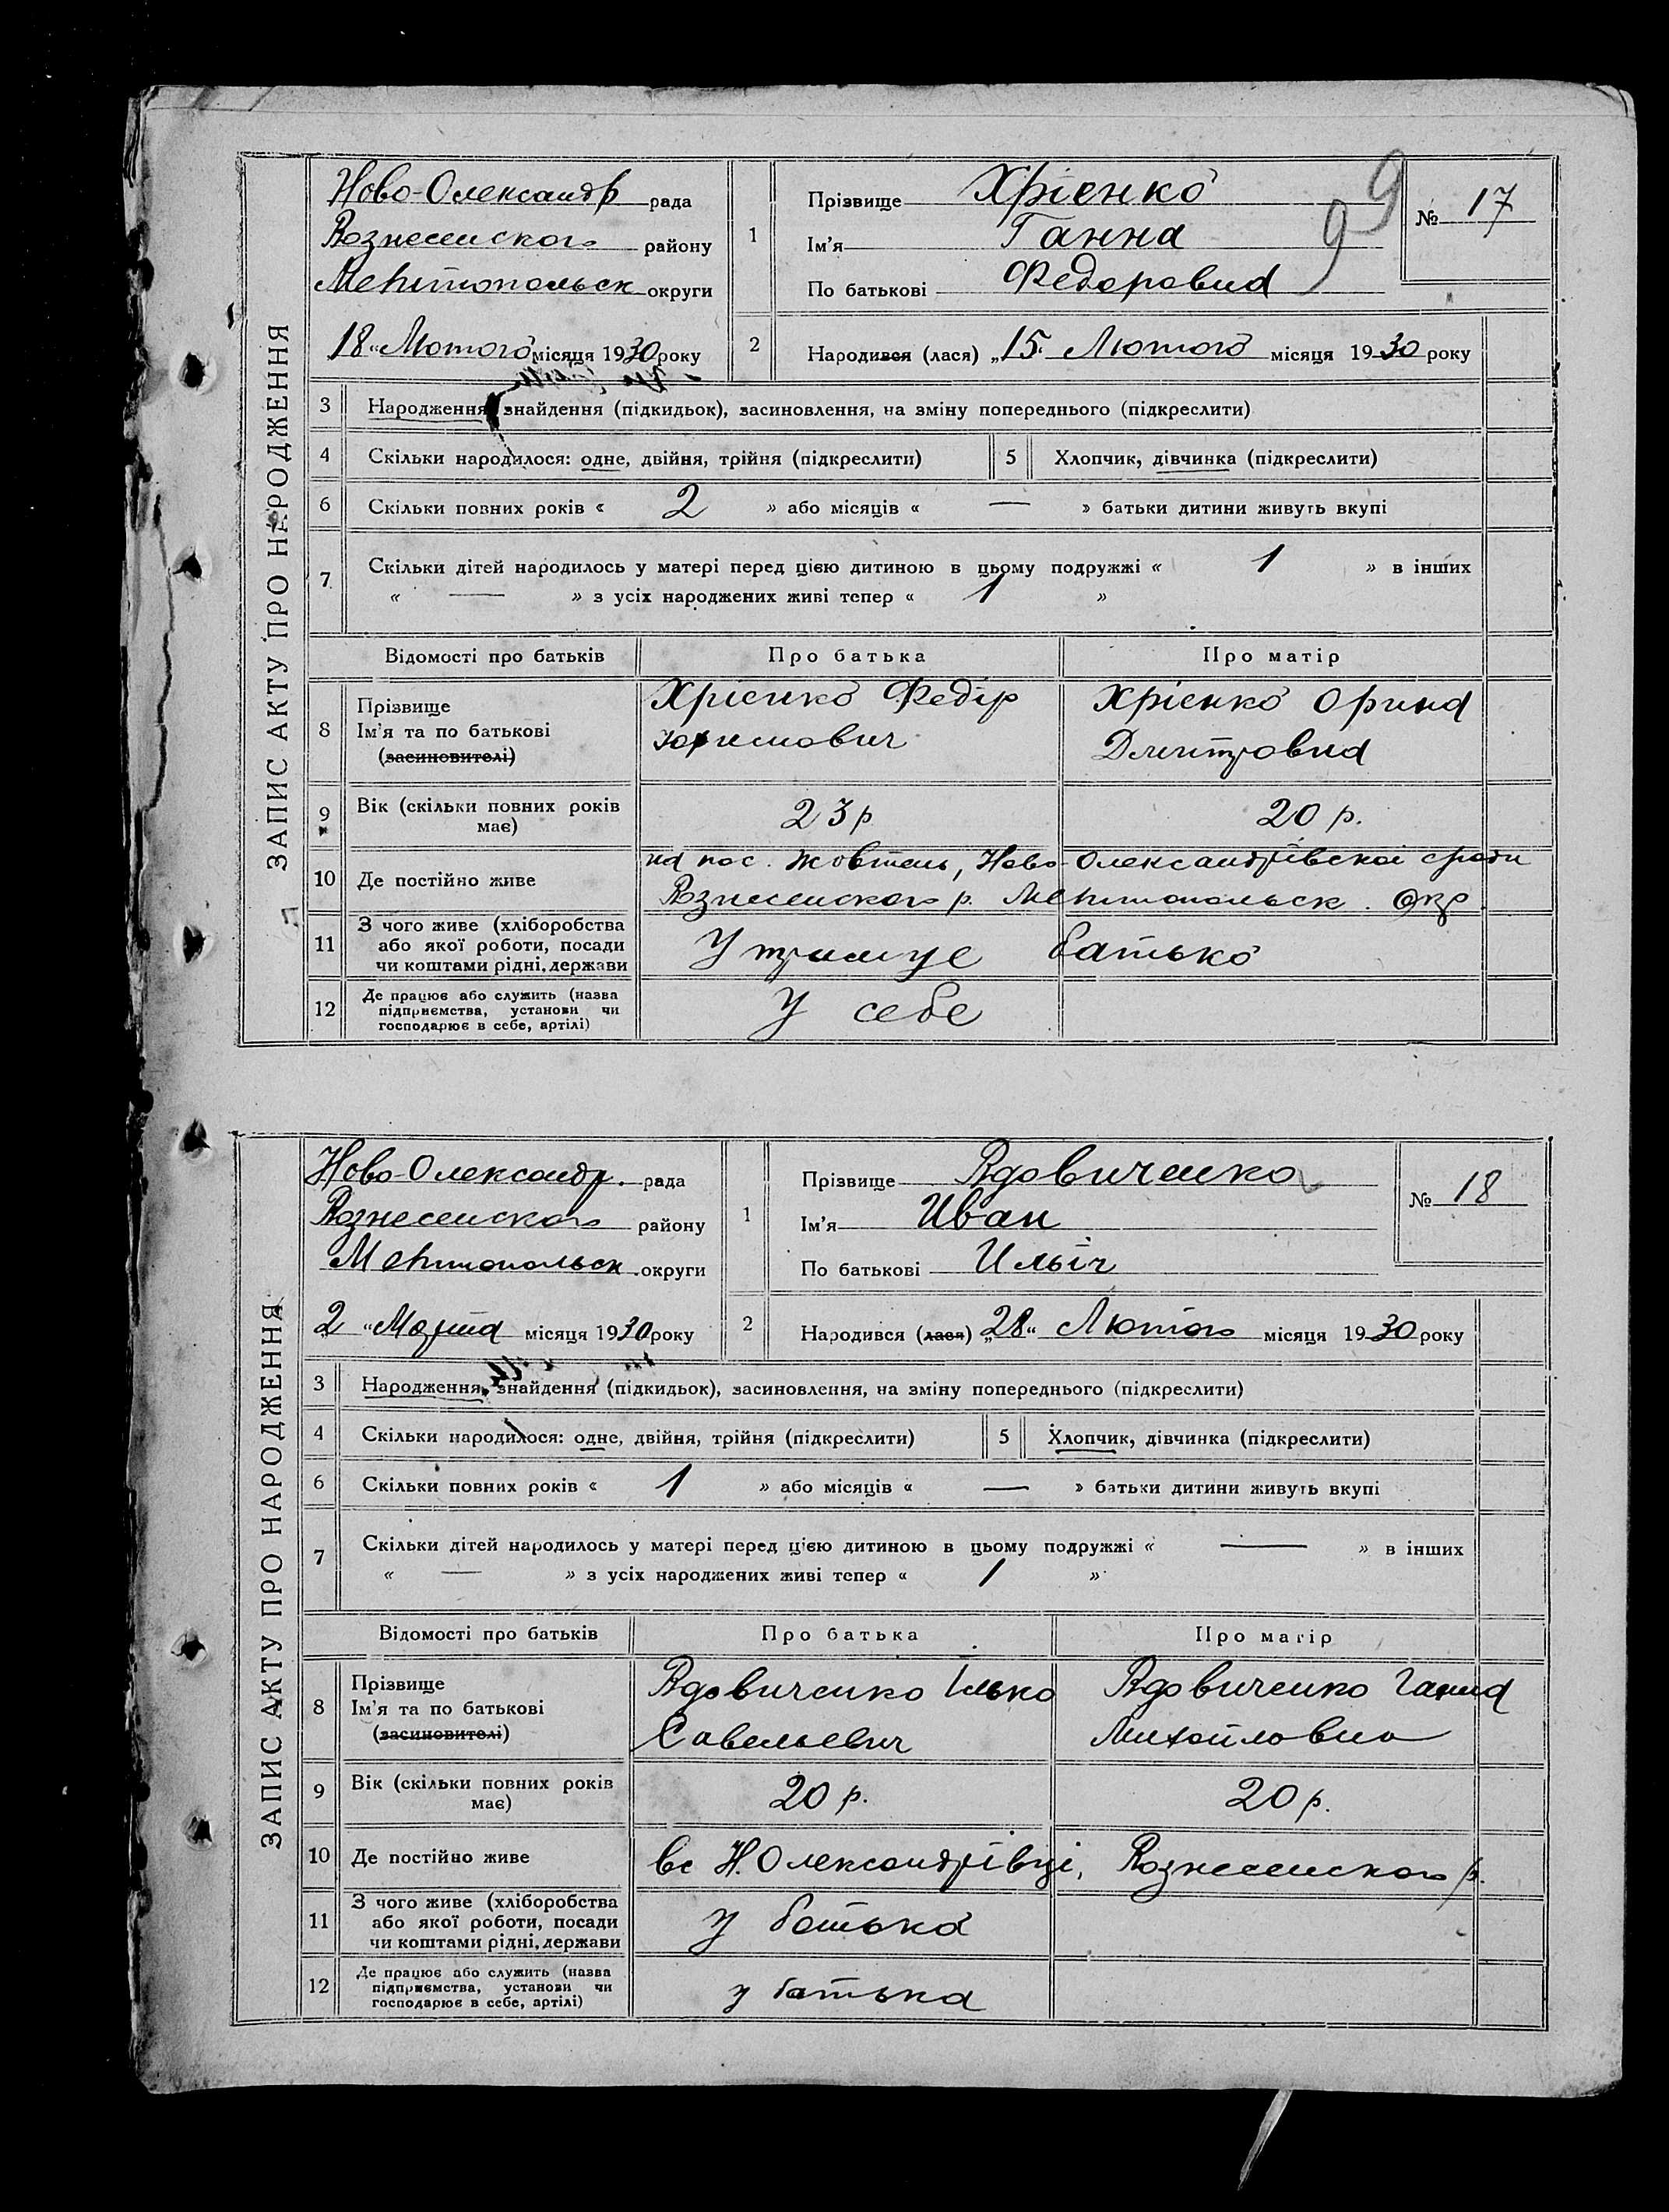 ЗАПИС АКТУ ПРО НАРОДЖЕННЯ
Ново-Олександр рада
Вознесенского району
Мелітопольск округи
18 "Лютого місяця 1930 року
1
Прізвище Хрієнко
Ім'я Ганна
По батькові Федоровна
99
№ 17
2
Народився (лася) „15“ Лютого місяця 1930 року
3 Народження, знайдення (підкидьок), засиновлення, на зміну попереднього (підкреслити)
4 Скільки народилося: одне, двійня, трійня (підкреслити) 5 Хлопчик, дівчинка (підкреслити)
6 Скільки повних років « 2 » або місяців « — » батьки дитини живуть вкупі
7 Скільки дітей народилось у матері перед цією дитиною в цьому подружжі « 1 » в інших
« — » з усіх народжених живі тепер « 1 »
Відомості про батьків Про батька Про матір
8 Прізвище
Ім'я та по батькові
(засиновителі)
Хрієнко Федір
Хрієнко Орина
Дмитровна
9 Вік (скільки повних років
має)
23 р
20 р.
10 Де постійно живе
на пос. Жовтень, Ново-Олександрівскоі
Вознесенского р. Мелітопольск. Окр.
11 З чого живе (хліборобства
або якої роботи, посади
чи коштами рідні, держави
Утримує батько
12 Де працює або служить (назва
підприємства, установи чи
господарює в себе, артілі)
У себе
ЗАПИС АКТУ ПРО НАРОДЖЕННЯ
Ново-Олександр. рада
Вознесенского району
Мелітопольск. округи
2 "Марта місяця 1930 року
1
Прізвище Вдовиченко
Ім'я Иван
По батькові Ильіч
№ 18
2
Народився (лася) „28“ Лютого місяця 1930 року
3 Народження, знайдення (підкидьок), засиновлення, на зміну попереднього (підкреслити)
4 Скільки народилося: одне, двійня, трійня (підкреслити) 5 Хлопчик, дівчинка (підкреслити)
6 Скільки повних років « 1 » або місяців « — » батьки дитини живуть вкупі
7 Скільки дітей народилось у матері перед цією дитиною в цьому подружжі « — » в інших
« — » з усіх народжених живі тепер « 1 »
Відомості про батьків Про батька Про матір
8 Прізвище
Ім'я та по батькові
(засиновителі)
Вдовиченко Ілько
Савельевич
Вдовиченко Ганна
Михайловна
9 Вік (скільки повних років
має)
20 р.
20 р.
10 Де постійно живе
вс Н. Олександрівці, Вознесенского р.
11 З чого живе (хліборобства
або якої роботи, посади
чи коштами рідні, держави
У батька
12 Де працює або служить (назва
підприємства, установи чи
господарює в себе, артілі)
у батька